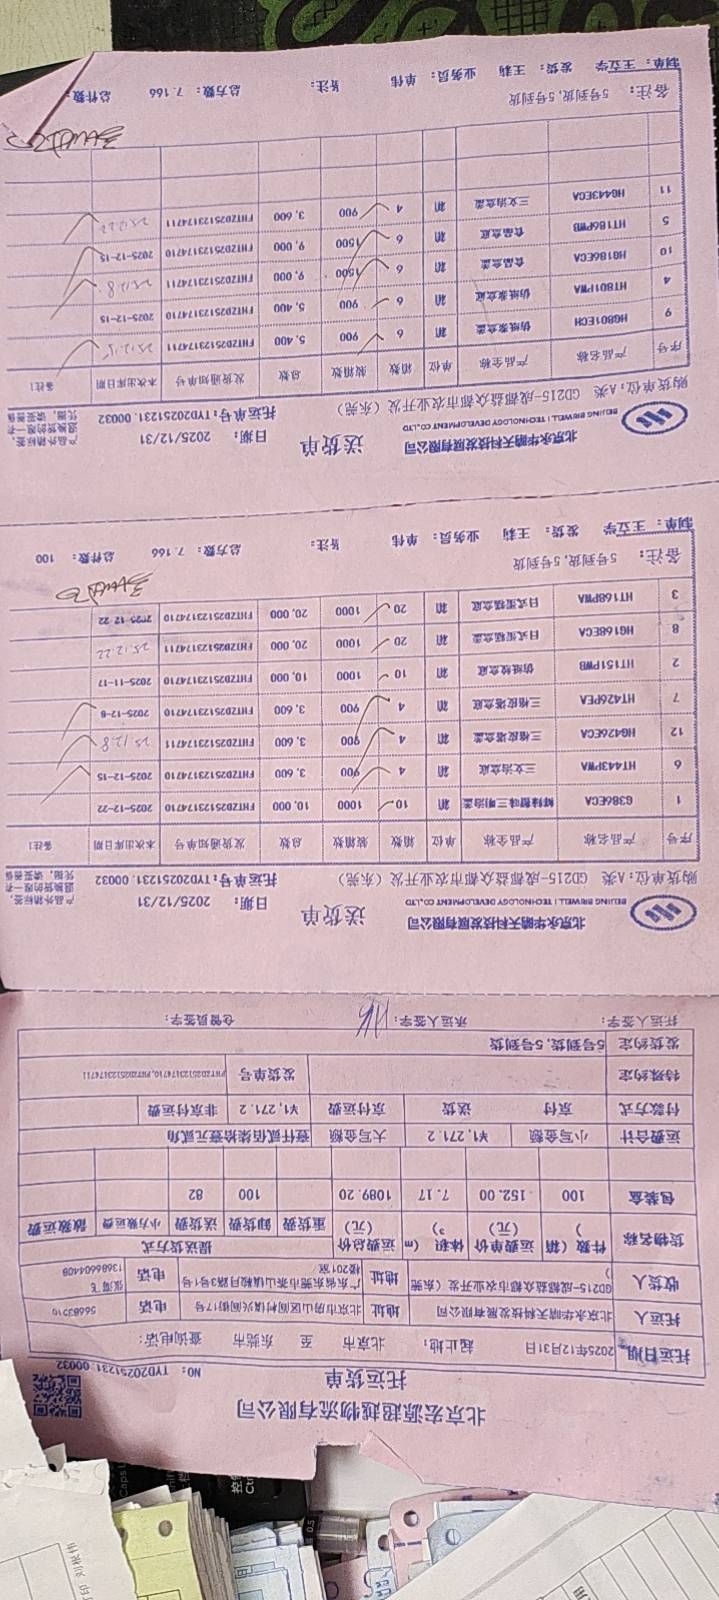 北京宏源超越物流有限公司
托运货单
NO: TYD20251231.00032
托运日期 2025年12月31日 起止地: 北京市 至 东莞市 查询电话:
托运人 北京永华晴天科技发展有限公司 地址 北京市房山区阎村镇兴阎街17号 电话 56683910
收货人 GD215-成都益众都市农业开发（东莞） 地址 广东省东莞市茶山镇翰月路3号1号楼201室 电话 张湾飞 13686604408
货物名称 件数（箱） 运费单价（元） 体积（m³） 运费总价（元） 提送货方式
重货费 卸货费 送货费 小方数运费 散数运费
包装盒 100 152.00 7.17 1089.20 100 82
运费合计 小写金额 ¥1,271.2 大写金额 壹仟贰佰柒拾壹元贰角
付款方式 京付 送货 京付运费 ¥1,271.2 非京付运费
特殊约定 发货单号 FHTZD2512317​4710,FHTZD25123174711
发货约定 5号到货,5号到货
托运人签字: 承运人签字: 仓管员签字:
北京永华晴天科技发展有限公司
BEIJING BRIWELL TECHNOLOGY DEVELOPMENT CO.,LTD
送货单
日期: 2025/12/31
购货单位: A类 GD215-成都益众都市农业开发（东莞） 托运单号: TYD20251231.00032
序号 产品名称 产品全称 单位 箱数 数箱数 总数 发货通知单号 本次出库日期 备注1
1 G386ECA 箱 10 1000 10,000 FHTZD25123174710 2025-12-22
6 HT443PWA 三文治盒底 箱 4 900 3,600 FHTZD25123174710 2025-12-15
12 HG426ECA 三格皮塔盒盖 箱 4 900 3,600 FHTZD25123174711 25.12.8
7 HT426PEA 三格皮塔盒底 箱 4 900 3,600 FHTZD25123174710 2025-12-8
2 HT151PWB 箱 10 1000 10,000 FHTZD25123174710 2025-11-17
8 HG168ECA 日式蛋糕盒盖 箱 20 1000 20,000 FHTZD25123174711 25.12.22
3 HT168PWA 日式蛋糕盒底 箱 20 1000 20,000 FHTZD25123174710 2025-12-22
备注: 5号到货,5号到货
制单: 王立学 发货: 王莉 业务员: 单伟 备注: 总方数: 7.166 总件数: 100
北京永华晴天科技发展有限公司
BEIJING BRIWELL TECHNOLOGY DEVELOPMENT CO.,LTD
送货单
日期: 2025/12/31
购货单位: A类 GD215-成都益众都市农业开发（东莞） 托运单号: TYD20251231.00032
序号 产品名称 产品全称 单位 箱数 数箱数 总数 发货通知单号 本次出库日期 备注1
9 HG801ECH 仿纸浆盒盖 箱 6 900 5,400 FHTZD25123174711 25.12.15
4 HT801PWA 仿纸浆盒底 箱 6 900 5,400 FHTZD25123174710 2025-12-15
10 HG186ECA 食品盒盖 箱 6 1500 9,000 FHTZD25123174711 25.12.8
5 HT186PWB 食品盒底 箱 6 1500 9,000 FHTZD25123174710 2025-12-15
11 HG443ECA 三文治盒盖 箱 4 900 3,600 FHTZD25123174711 25.12.22
备注: 5号到货,5号到货
制单: 王立学 发货: 王莉 业务员: 单伟 备注: 总方数: 7.166 总件数: